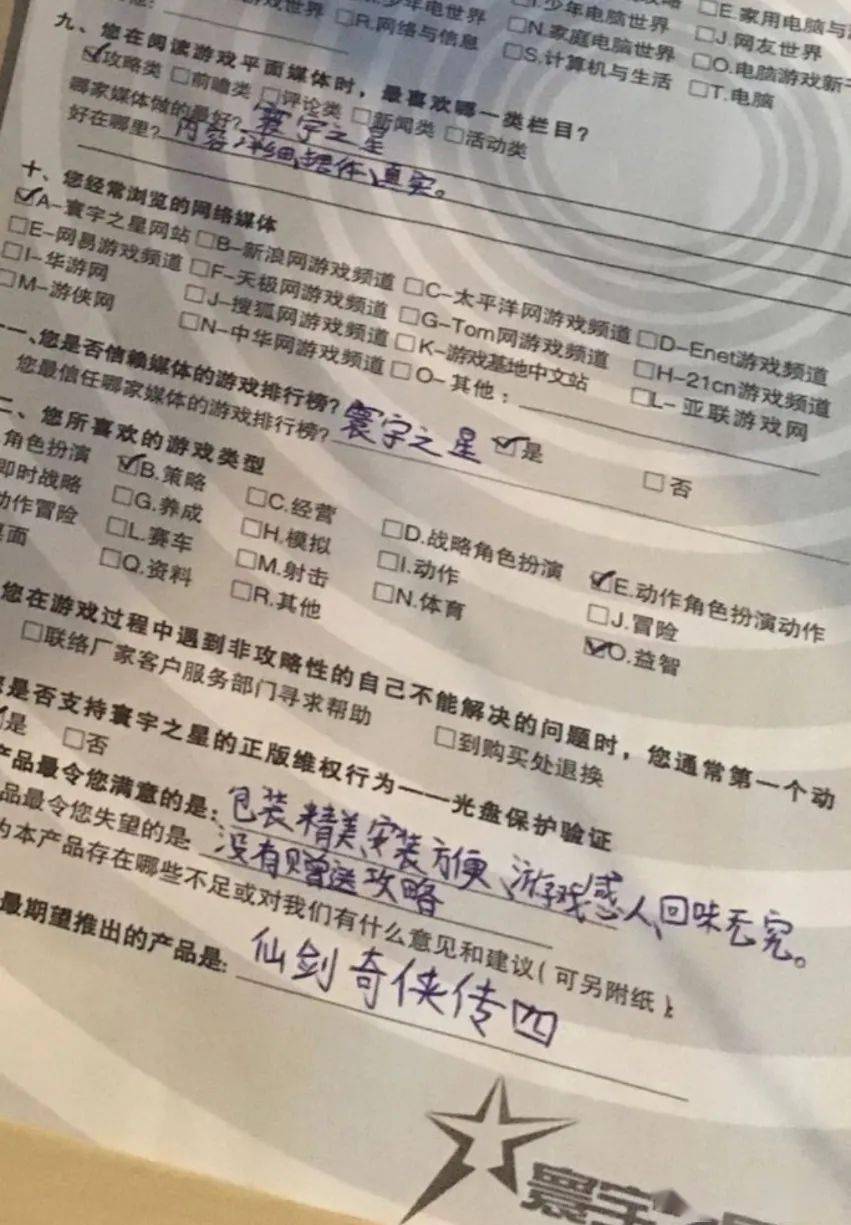 游戏世界 □R.网络与信息 少年电世界 □N.家庭电脑世界 少年电脑世界 □S.计算机与生活 □J.网友世界 □E.家用电脑与
□O.电脑游戏新 □T.电脑
九、您在阅读游戏平面媒体时，最喜欢哪一类栏目？
☑攻略类 □前瞻类 □评论类 □新闻类 □活动类
哪家媒体做的最好？寰宇之星
好在哪里？内容详细、真实。
十、您经常浏览的网络媒体
☑A-寰宇之星网站 □B-新浪网游戏频道 □C-太平洋网游戏频道 □D-Enet游戏频道
□E-网易游戏频道 □F-天极网游戏频道 □G-Tom网游戏频道 □H-21cn游戏频道
□I-华游网 □J-搜狐网游戏频道 □K-游戏基地中文站 □L-亚联游戏网
□M-游侠网 □N-中华网游戏频道 □O-其他：
一、您是否信赖媒体的游戏排行榜？ ☑是 □否
您最信任哪家媒体的游戏排行榜？寰宇之星
二、您所喜欢的游戏类型
角色扮演 ☑B.策略 □C.经营 □D.战略角色扮演 ☑E.动作角色扮演动作
即时战略 □G.养成 □H.模拟 □I.动作 □J.冒险
动作冒险 □L.赛车 □M.射击 □N.体育 ☑O.益智
桌面 □Q.资料 □R.其他
您在游戏过程中遇到非攻略性的自己不能解决的问题时，您通常第一个动
□联络厂家客户服务部门寻求帮助 □到购买处退换
您是否支持寰宇之星的正版维权行为——光盘保护验证
☑是 □否
产品最令您满意的是：包装精美、安装方便、游戏感人、回味无穷。
品最令您失望的是：没有赠送攻略
为本产品存在哪些不足或对我们有什么意见和建议（可另附纸）：
最期望推出的产品是：仙剑奇侠传四
寰宇